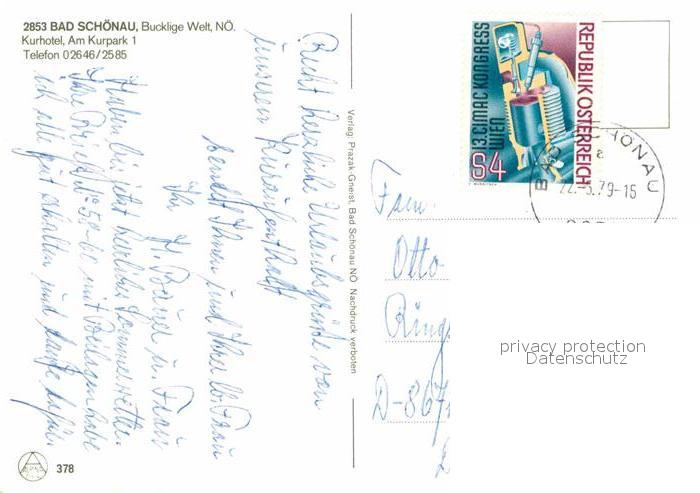 2853 BAD SCHÖNAU, Bucklige Welt, NÖ.
Kurhotel, Am Kurpark 1
Telefon 02646/2585
Recht herzliche Urlaubsgrüße von
unserem Kuraufenthalt
sendet Ihnen und Ihrer lb. Frau
Ihr H. Bauer u. Frau
Haben bis jetzt herrliches Sommerwetter.
Ihre Briefe mit Beilagen habe
ich alle gut erhalten und danke
Verlag: Prazak-Gneist, Bad Schönau NÖ Nachdruck verboten
13. CIMAC KONGRESS
WIEN
REPUBLIK ÖSTERREICH
S4
BAD SCHÖNAU
22.-5.79-15
Fam.
Otto
Ring
D-867
privacy protection
Datenschutz
378